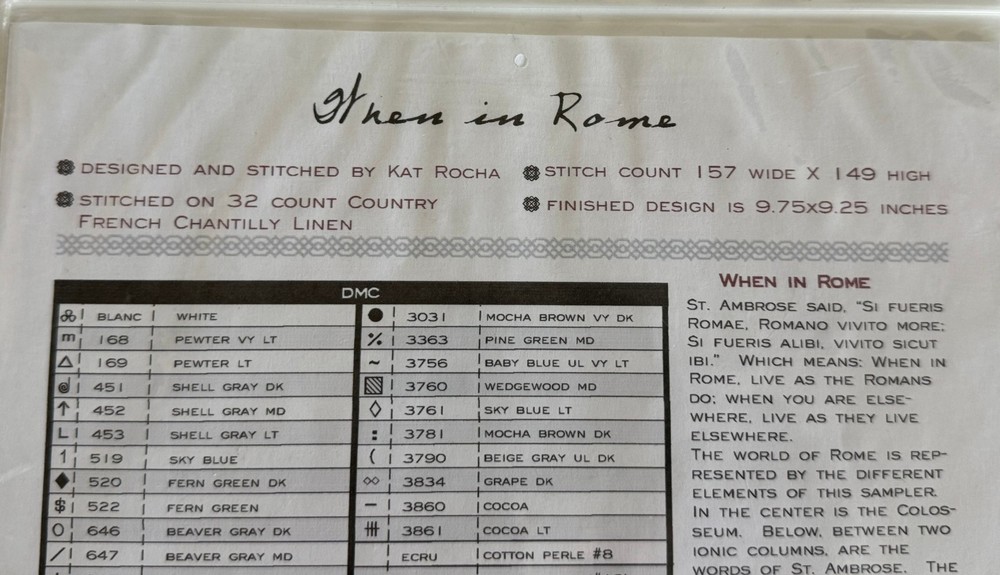 When in Rome
DESIGNED AND STITCHED BY KAT ROCHA
STITCHED ON 32 COUNT COUNTRY
FRENCH CHANTILLY LINEN
STITCH COUNT 157 WIDE X 149 HIGH
FINISHED DESIGN IS 9.75X9.25 INCHES
DMC
BLANC WHITE
m 168 PEWTER VY LT
169 PEWTER LT
451 SHELL GRAY DK
↑ 452 SHELL GRAY MD
L 453 SHELL GRAY LT
1 519 SKY BLUE
◆ 520 FERN GREEN DK
$ 522 FERN GREEN
O 646 BEAVER GRAY DK
/ 647 BEAVER GRAY MD
● 3031 MOCHA BROWN VY DK
٪ 3363 PINE GREEN MD
~ 3756 BABY BLUE UL VY LT
3760 WEDGEWOOD MD
◇ 3761 SKY BLUE LT
: 3781 MOCHA BROWN DK
( 3790 BEIGE GRAY UL DK
3834 GRAPE DK
– 3860 COCOA
3861 COCOA LT
ECRU COTTON PERLE #8
WHEN IN ROME
ST. AMBROSE SAID, “SI FUERIS
ROMAE, ROMANO VIVITO MORE;
SI FUERIS ALIBI, VIVITO SICUT
IBI.” WHICH MEANS: WHEN IN
ROME, LIVE AS THE ROMANS
DO; WHEN YOU ARE ELSE-
WHERE, LIVE AS THEY LIVE
ELSEWHERE.
THE WORLD OF ROME IS REP-
RESENTED BY THE DIFFERENT
ELEMENTS OF THIS SAMPLER.
IN THE CENTER IS THE COLOS-
SEUM. BELOW, BETWEEN TWO
IONIC COLUMNS, ARE THE
WORDS OF ST. AMBROSE. THE